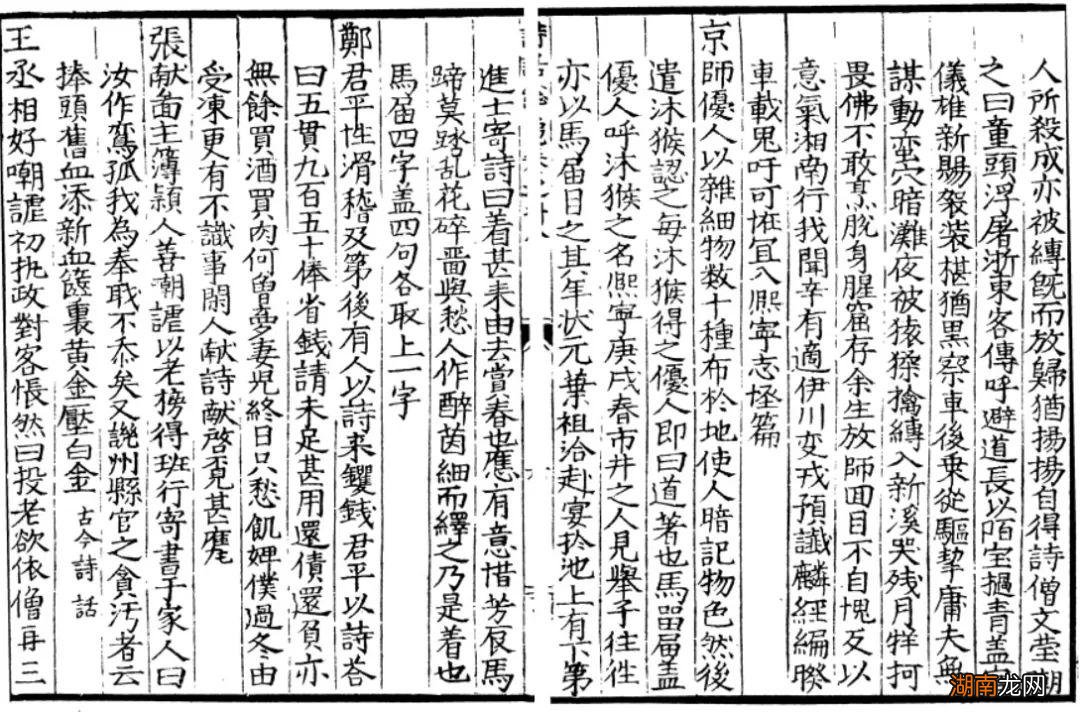 人所殺成亦被縛旣而放歸猶揚揚自得詩僧文瑩嘲
之曰童頭浮屠浙東客傳呼避道長以陌室撾青盖
儀雄新賜裝裝椹猶黑察車後乗從驅挚庸夫無
謀動蛮穴暗灘夜被猿猱擒縛入新溪哭残月牂柯
畏佛不敢烹脫身腥窟存余生放師回目不自愧反以
意氣湘南行我聞辛有適伊川变戎預讖麟經編睽
車載鬼吁可恠冝入熈寧志怪篇
京師優人以雜細物数十種布於地使人暗記物色然後
遣沐猴認之每沐猴得之優人即曰道著也馬留届盖
優人呼沐猴之名熈寧庚戌春市井之人見舉子往往
亦以馬届目之其年状元葉祖洽赴宴扵池上有下第
進士寄詩曰着甚来由去賞春也應有意惜芳辰馬
蹄莫踏乱花碎畱與愁人作醉茵細而繹之乃是着也
馬届四字盖四句各取上一字
鄭君平性滑稽及第後有人以詩来钁錢君平以詩荅
曰五貫九百五十俸省錢請未足甚用還債還負亦
無餘買酒買肉何曽夛妻児終日只愁飢婢僕過冬由
受凍更有不識事閑人献詩献啓覓甚麽
張献啚主簿潁人善嘲謔以老榜得班行寄書于家人曰
汝作鸞孤我為奉戢不忝矣又譏州縣官之貪汚者云
捧頭舊血添新血篋裏黄金壓白金 古今詩話
王丞相好嘲謔初执政對客悵然曰投老欲依僧再三
湖南龙网